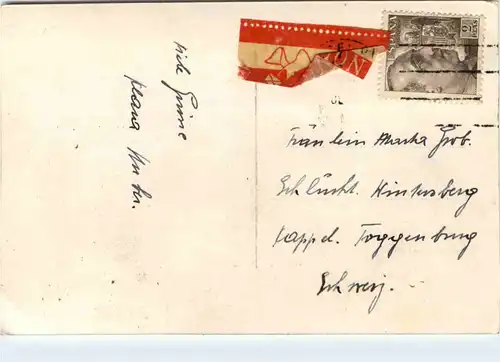 viele Grüsse
Fräulein Martha Grob.
Schlücht. Hintersberg
Kappel. Toggenburg
Schweiz.